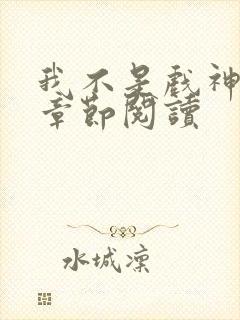 我不是戲神
章節閱讀
水城凜